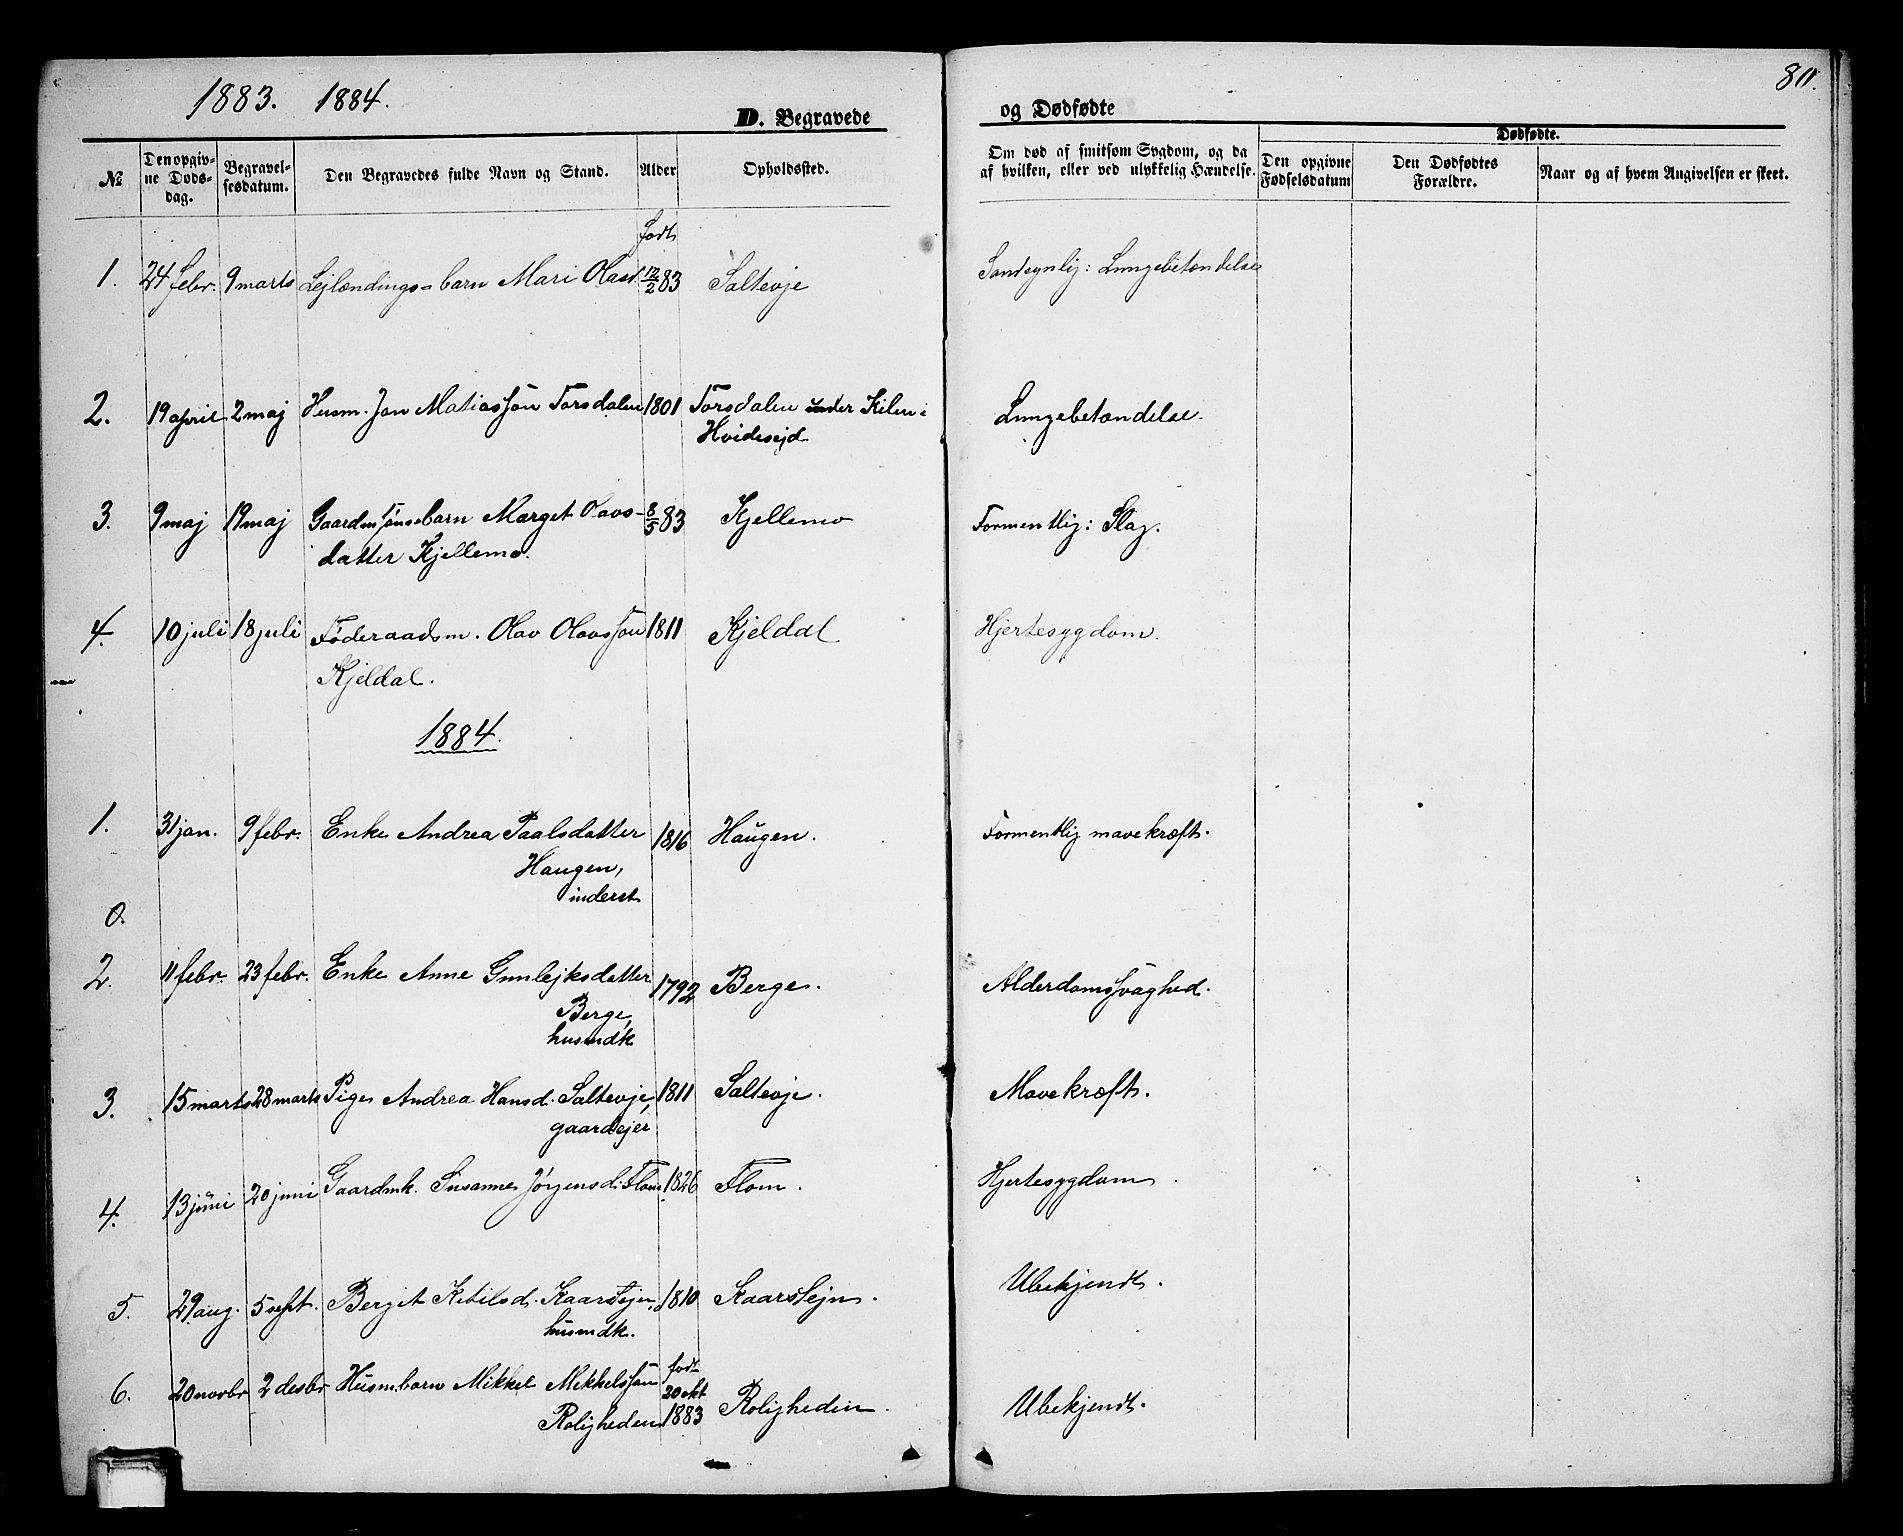 1883. 1884.
D. Begravede
og Dødfødte
80.
№
Den opgivne Dødsdag.
Begravelsesdatum.
Den Begravedes fulde Navn og Stand.
Alder
Opholdssted.
Om død af smitsom Sygdom, og da
af hvilken, eller ved ulykkelig Hændelse.
Dødfødte.
Den opgivne
Fødselsdatum
Den Dødfødtes
Forældre.
Naar og af hvem Angivelsen er skeet.
født
1. 24 febr. 9 marts Lejlændings-barn Mari Olasd. 12/2 83 Saltevje Sandsynlig: Lungebetændelse
2. 19 april 2 maj Husm. Jon Matiassøn Torsdalen 1801 Torsdalen under Kilen i Lungebetændelse.
Hvidesejd
3. 9 maj 19 maj Gaardm. barn Marget Oavs- 8/5 83 Kjellemo Formentlig: Slag.
datter Kjellemo.
4. 10 juli 18 juli Føderaadsm. Olav Olavssøn 1811 Kjeldal Hjertesygdom.
Kjeldal.
1884.
1. 31 jan. 9 febr. Enke Andrea Paalsdatter 1816 Haugen. Formentlig mavekræft.
Haugen,
inderst
0.
2. 11 febr. 23 febr. Enke Anne Gunlejksdatter 1792 Berge. Alderdomssvaghed.
Berge,
husmdk
3. 15 marts 28 marts Pige Andrea Hansd. Saltevje, 1811 Saltevje. Mavekræft.
gaardejer
4. 13 juni 20 juni Gaardmk. Susanne Jørgensd. Flom 1826 Flom. Hjertesygdom
5. 29 aug. 5 sept. Bergit Ketilsd. Kaarstejn, 1810 Kaarstejn. Ubekjendt.
husmdk.
født
6. 20 novbr 2 desbr Husm.barn Mikkel Mikkelssøn 20 okt Roligheden. Ubekjendt.
Roligheden 1883